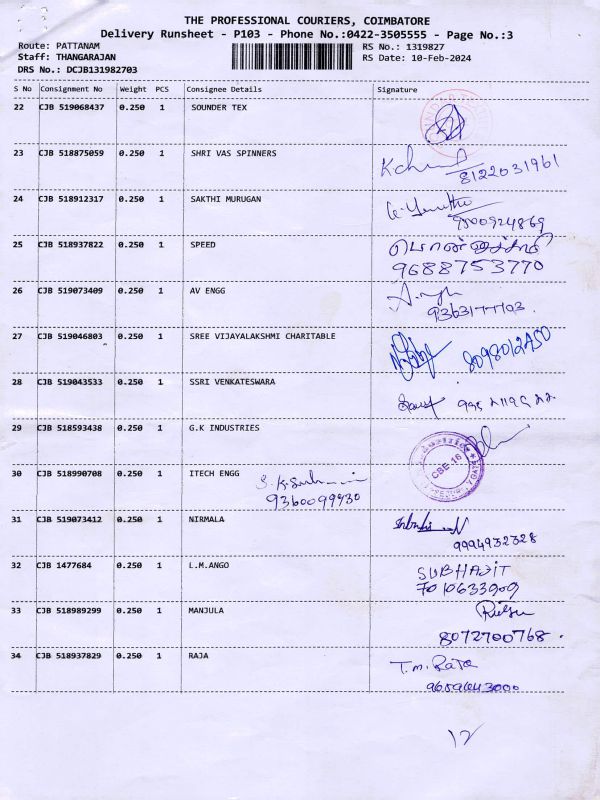 THE PROFESSIONAL COURIERS, COIMBATORE
Delivery Runsheet - P103 - Phone No.:0422-3505555 - Page No.:3
Route: PATTANAM RS No.: 1319827
Staff: THANGARAJAN RS Date: 10-Feb-2024
DRS No.: DCJB131982703
S No Consignment No Weight PCS Consignee Details Signature
22 CJB 519068437 0.250 1 SOUNDER TEX
23 CJB 518875059 0.250 1 SHRI VAS SPINNERS
8122031961
24 CJB 518912317 0.250 1 SAKTHI MURUGAN
9500924869
25 CJB 518937822 0.250 1 SPEED
9688753770
26 CJB 519073409 0.250 1 AV ENGG
27 CJB 519046803 0.250 1 SREE VIJAYALAKSHMI CHARITABLE
28 CJB 519043533 0.250 1 SSRI VENKATESWARA
29 CJB 518593438 0.250 1 G.K INDUSTRIES
CBE-16
30 CJB 518990708 0.250 1 ITECH ENGG
31 CJB 519073412 0.250 1 NIRMALA
9994932328
32 CJB 1477684 0.250 1 L.M.ANGO SUBHAJIT
7010633909
33 CJB 518989299 0.250 1 MANJULA
8072700768.
34 CJB 518937829 0.250 1 RAJA T.M. Raja
9659643000
12